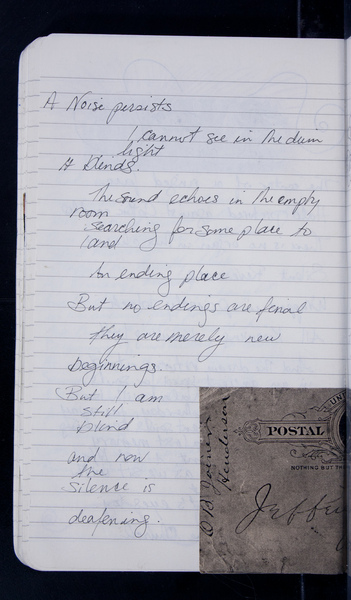 A Noise persists
I cannot see in the dim
light
It blends.
The sound echoes in the empty
room
searching for some place to
land
An ending place
But no endings are final
they are merely new
beginnings.
But I am
still
blind
and now
the
silence is
deafening.
UN
POSTAL
NOTHING BUT TH
Henderson
Jeffe